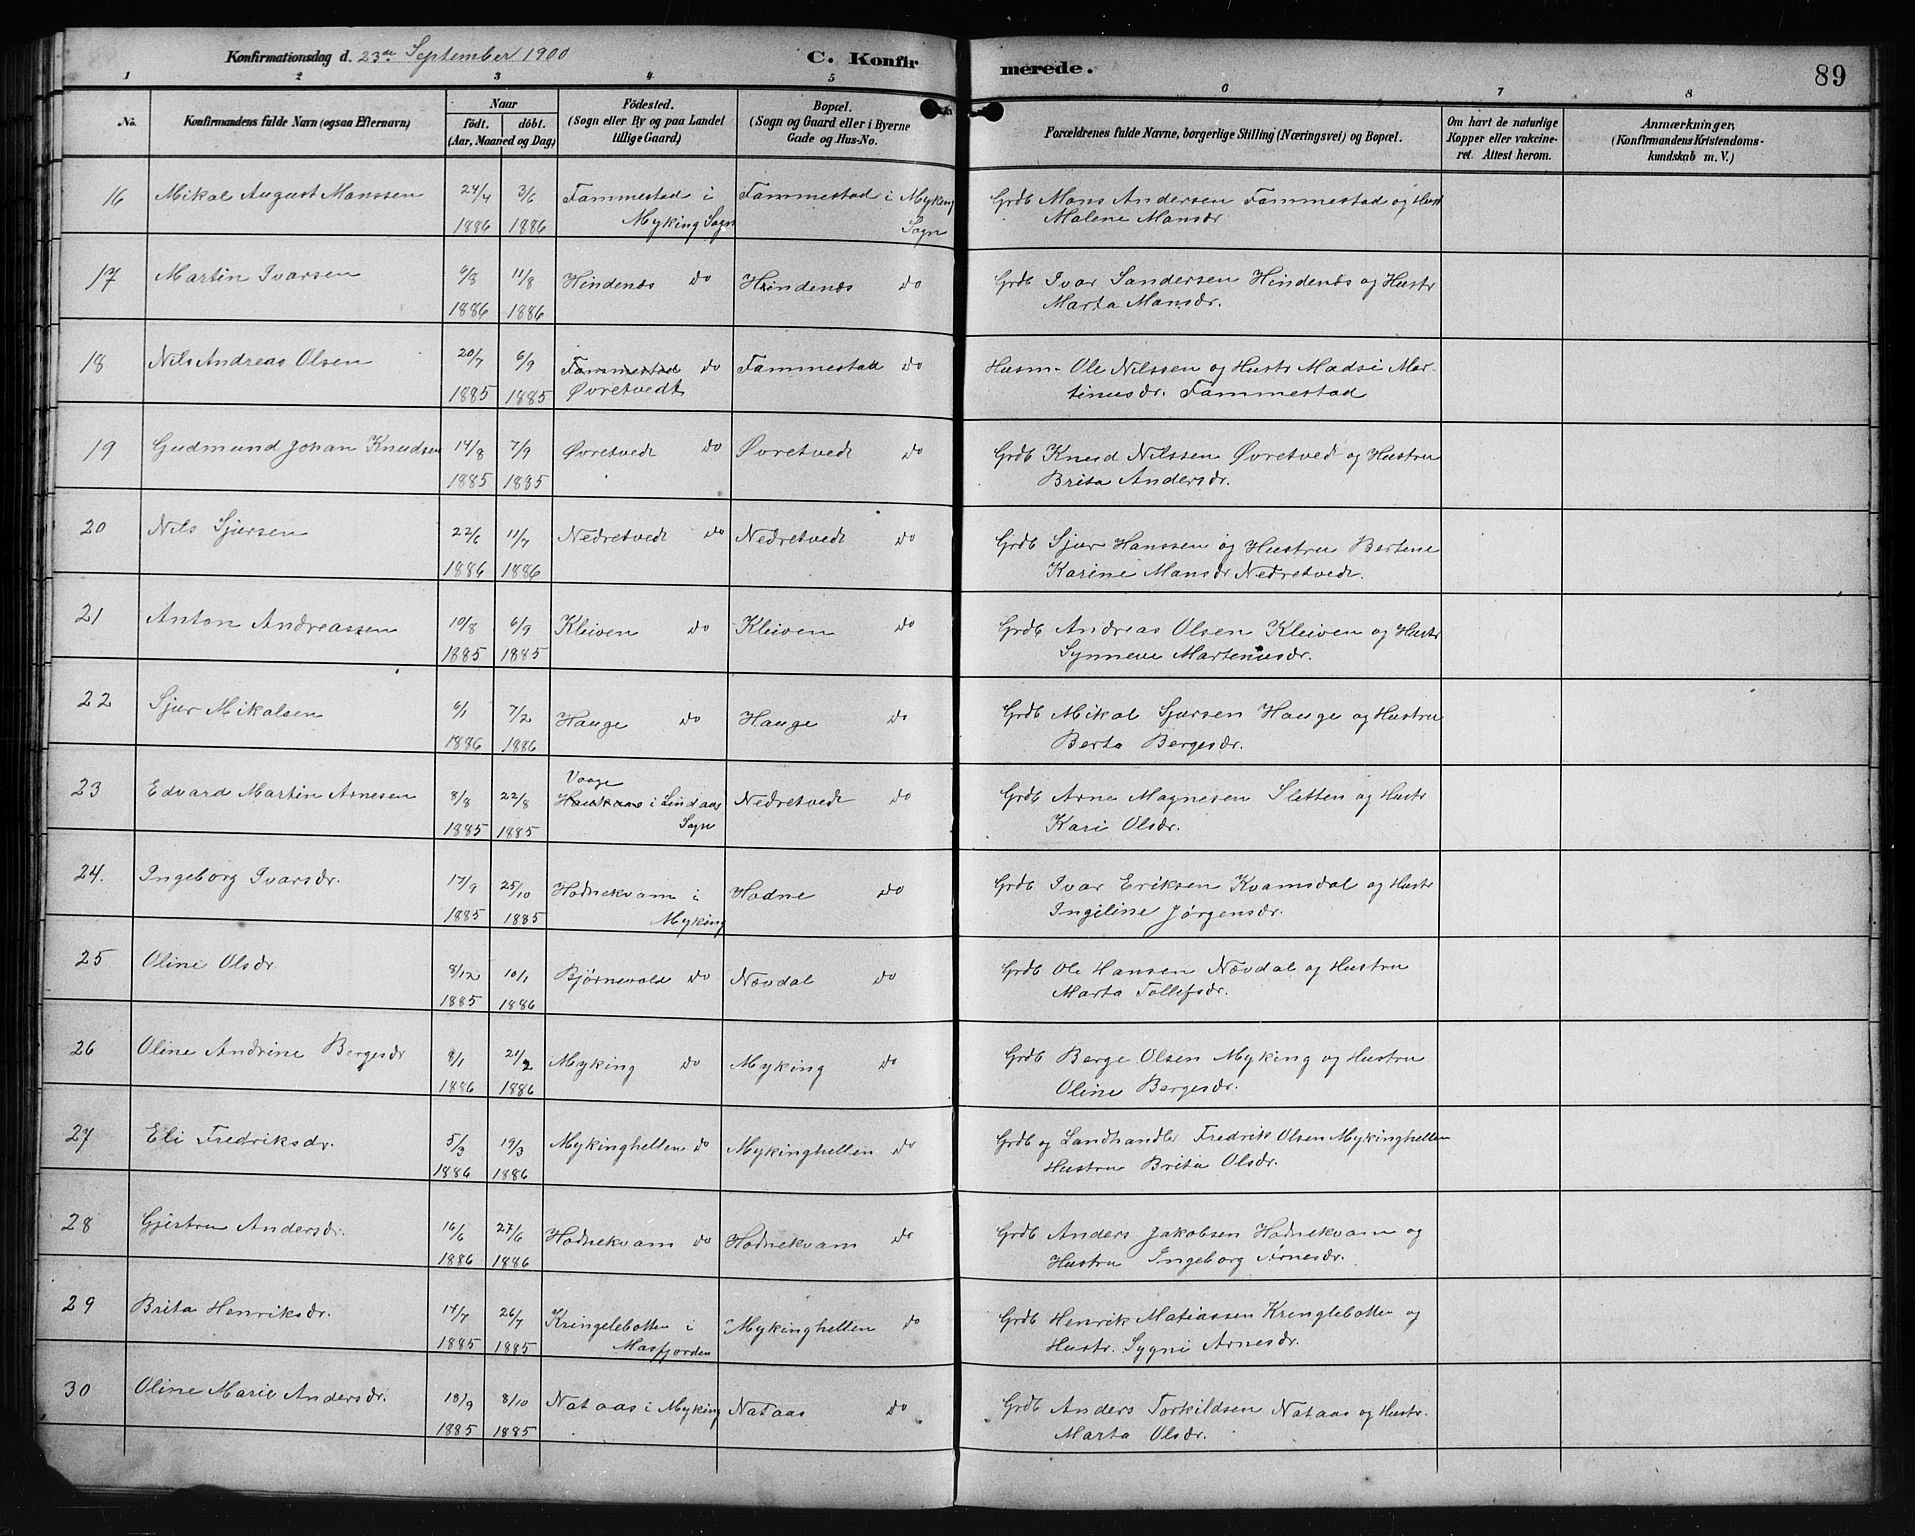 Konfirmationsdag d. 23de September 1900 C. Konfirmerede. 89
1 2 3 4 5 6 7 8
No. Konfirmandens fulde Navn (ogsaa Efternavn) Naar födt. döbt. (Aar, Maaned og Dag) Födested. (Sogn eller By og paa Landet tillige Gaard) Bopæl. (Sogn og Gaard eller i Byerne Gade og Hus-No. Forældrenes fulde Navne, borgerlige Stilling (Næringsvei) og Bopæl. Om havt de naturlige Kopper eller vakcineret. Attest herom. Anmærkninger, (Konfirmandens Kristendomskundskab m. V.)
16 Mikal August Monssen 24/4 3/6 Fammestad i Fammestad i Myking Grdb Mons Andersen Fammestad og Hust
1886 1886 Myking Sogn Sogn Malene Monsdr
17 Martin Ivarsen 6/8 11/8 Hindenes do Hindenes do Grdb Ivar Sandersen Hindenes og Hustr
1886 1886 Marta Monsdr.
18 Nils Andreas Olsen 20/7 6/9 Fammestad do Fammestad do Husm- Ole Nilssen og Hustr Madsi Mar-
1885 1885 Øvretvedt tinusdr. Fammestad
19 Gudmund Johan Knudsen 14/8 7/9 Øvretvedt do Øvretvedt do Grdb Knud Nilssen Øvretved og Hustru
1885 1885 Brita Andersdr.
20 Nils Sjursen 22/6 11/7 Nedretvedt do Nedretvedt do Grdb Sjur Hanssen og Hustru Bertine
1886 1886 Karine Monsdr Nedretvedt.
21 Anton Andreassen 10/8 6/9 Kleiven do Kleiven do Grdb Andreas Olsen Kleiven og Hustr
1885 1885 Synneve Martenusdr.
22 Sjur Mikalsen 6/1 7/2 Hauge do Hauge do Grdb Mikal Sjursen Hauge og Hustru
1886 1886 Berta Bergesdr.
23 Edvard Martin Arnesen 8/8 22/8 Vaage i Lindaas Nedretvedt do Grdb Arne Magnesen Sletten og Hustr
1885 1885 Sogn Kari Olsdr.
24. Ingeborg Ivarsdr. 17/9 25/10 Hodnekvam i Hodne do Grdb Ivar Eriksen Kvamsdal og Hustr
1885 1885 Myking Ingeline Jørgensdr.
25 Oline Olsdr. 8/12 10/1 Bjørnevold do Nævdal do Grdb Ole Hansen Nævdal og Hustru
1885 1886 Marta Tollefsdr.
26 Oline Andrine Bergesdr 8/1 21/2 Myking do Myking do Grdb Berge Olsen Myking og Hustru
1886 1886 Oline Bergesdr.
27 Eli Fredriksdr. 5/3 19/3 Mykinghellen do Mykinghellen do Grdb og Landhandler Fredrik Olsen Mykinghellen
1886 1886 Hustru Brita Olsdr.
28 Gjertru Andersdr. 16/6 27/6 Hodnekvam do Hodnekvam do Grdb Anders Jakobsen Hodnekvam og
1886 1886 Hustru Ingeborg Arnesdr.
29 Brita Henriksdr. 14/7 26/7 Kringlebotten i Mykinghellen do Grdb Henrik Matiassen Krenglebotten og
1885 1885 Masfjorden Hustr. Sygni Arnesdr.
30 Oline Marie Andersdr. 18/9 8/10 Nataas i Myking Nataas do Grdb Anders Torkildsen Nataas og Hustr.
1885 1885 Marta Olsdr.